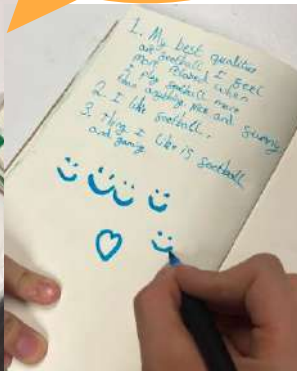 1. My best qualities
are football I feel
more relaxed when
I play football more
than anything. Nice and Sunny
2. I like football.
3. Thing I like is football
and gaming